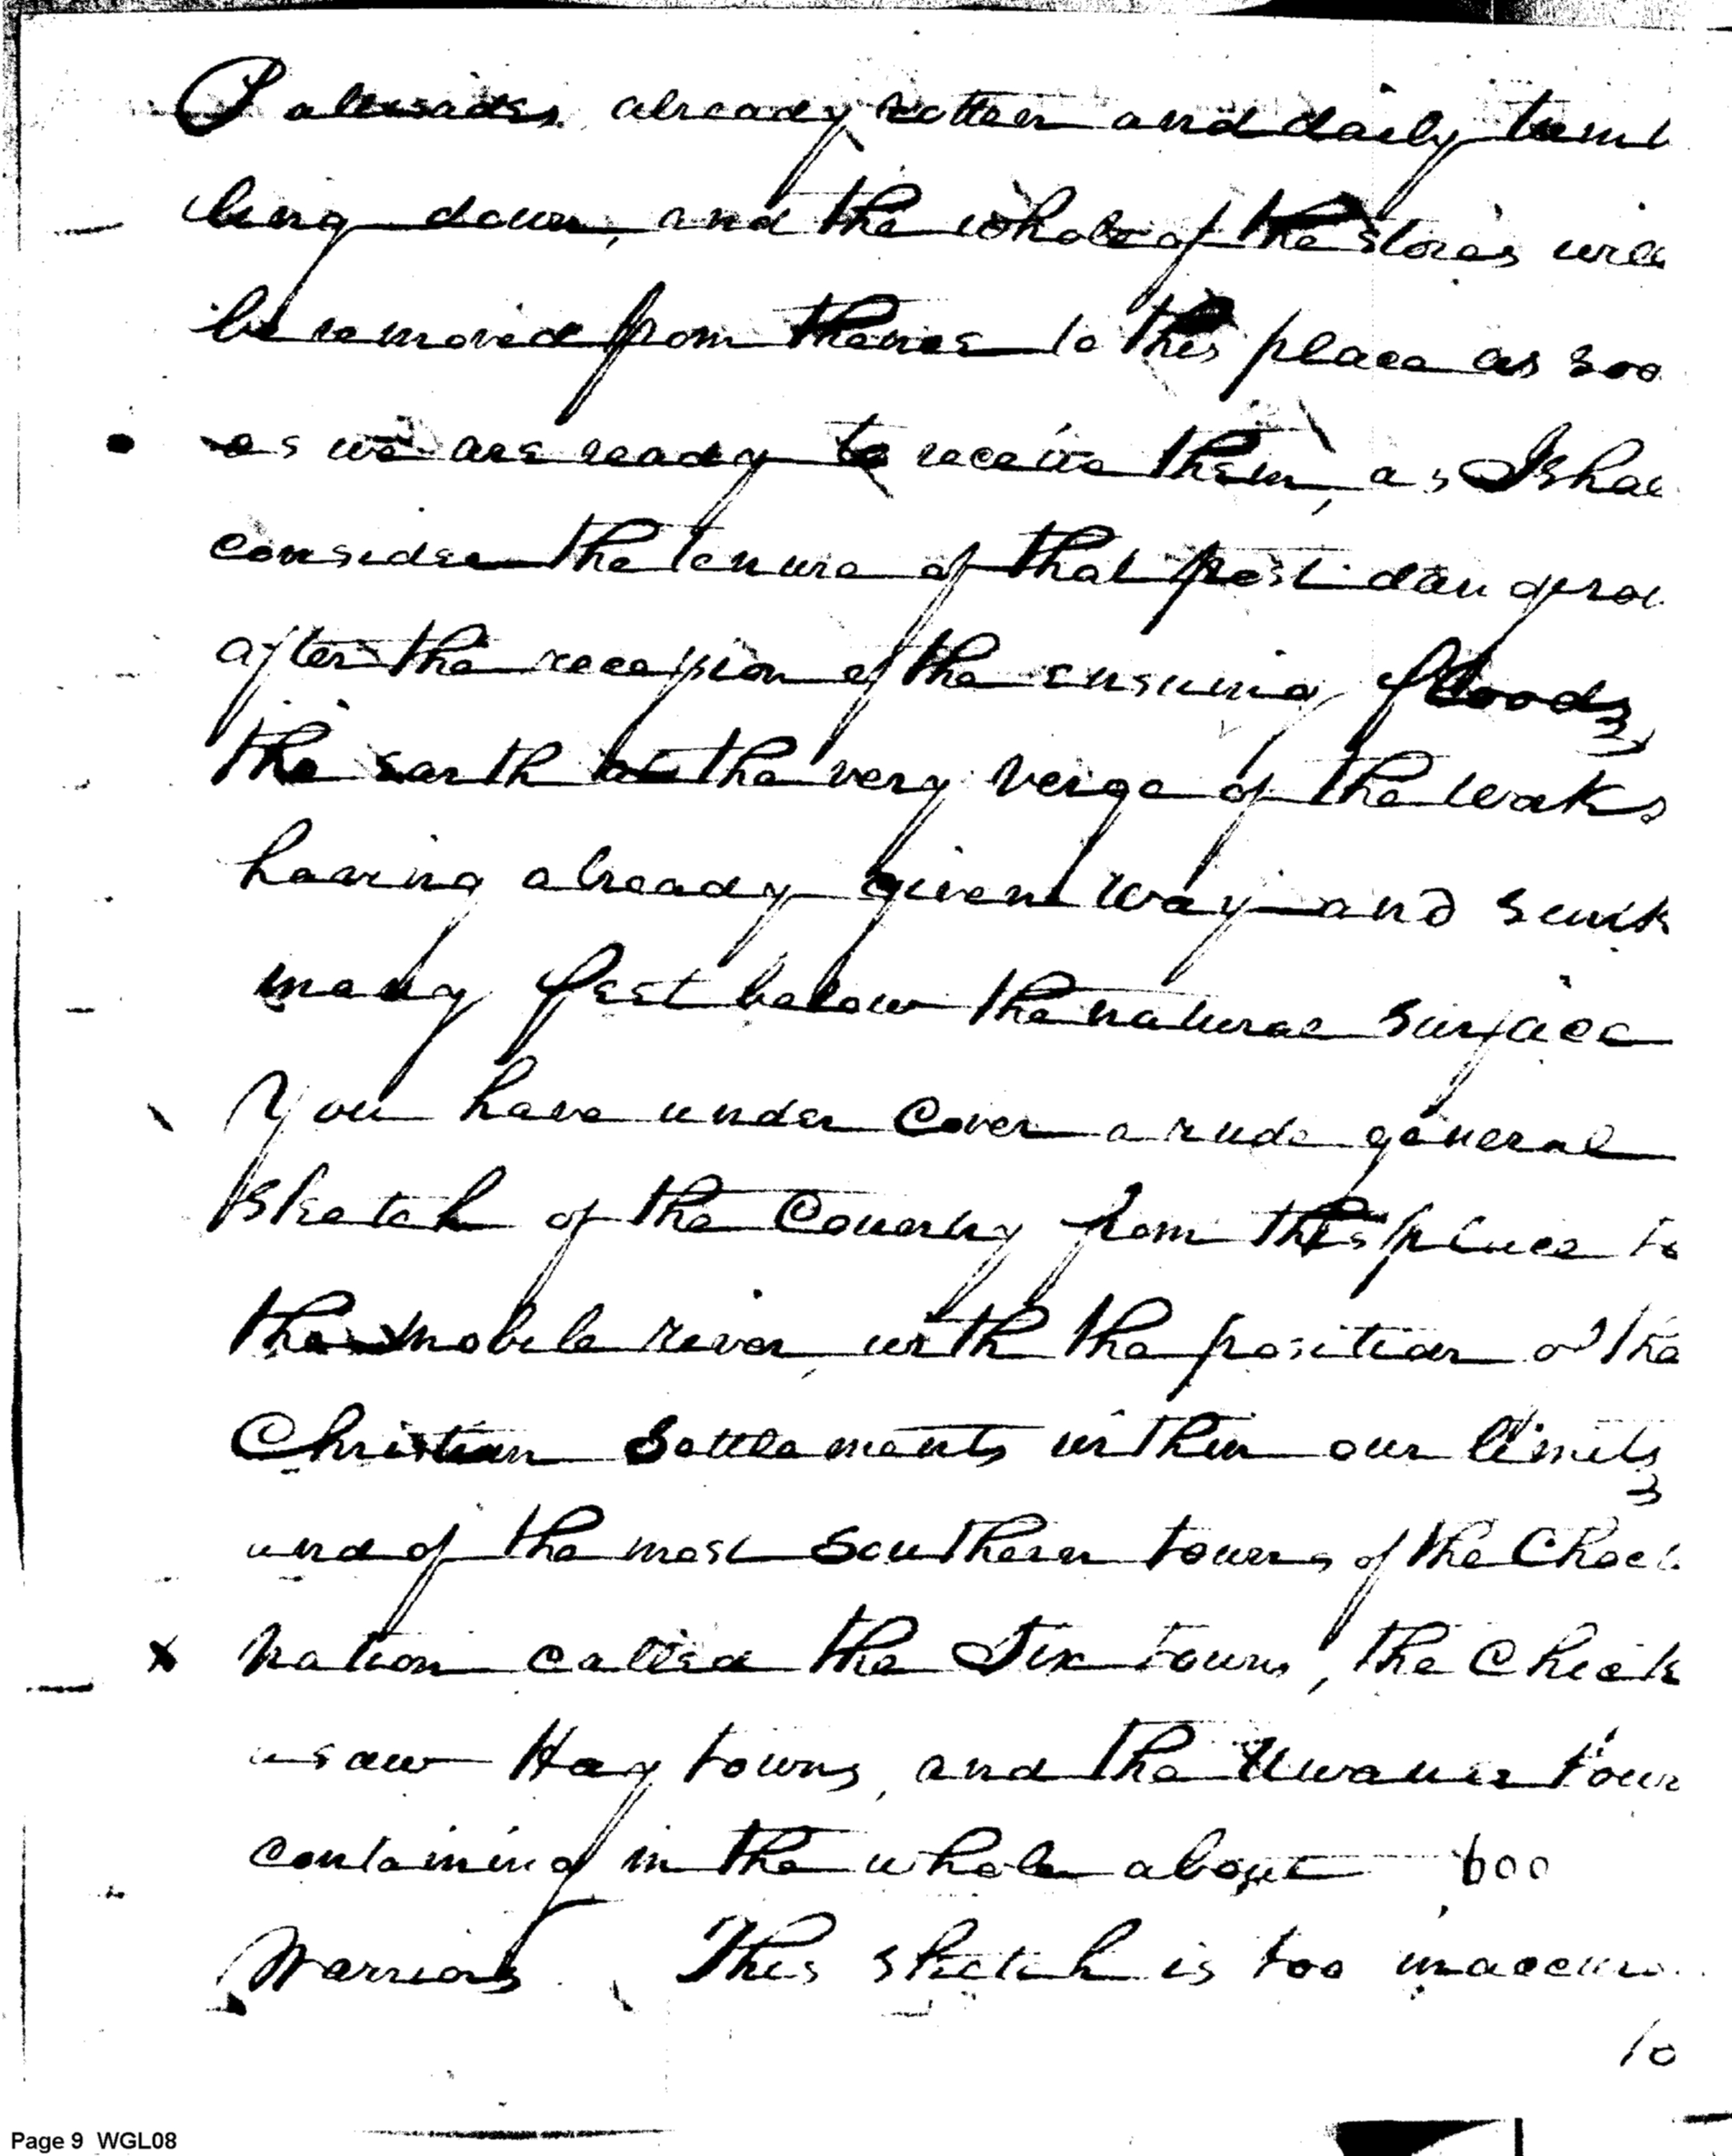 Pallisades already rotten and daily tumb
ling down, and the whole of the stores will
be removed from thence to this place as soo
as we are ready to receive them, as I shal
consider the tenure of that post dangerou
after the recession of the ensuing floods,
the earth at the very verge of the works
having already given way and sunk
many feet below the natural surface
You have under cover a rude general
sketch of the Country from this place to
the mobile river, with the position of the
Christian Settlements within our limits,
and of the most Southern towns of the Choc
nation called the Six towns, the Chick
asaw Hay towns, and the town
containing in the whole about 600
Warriors. This sketch is too inaccura
10
Page 9 WGL08